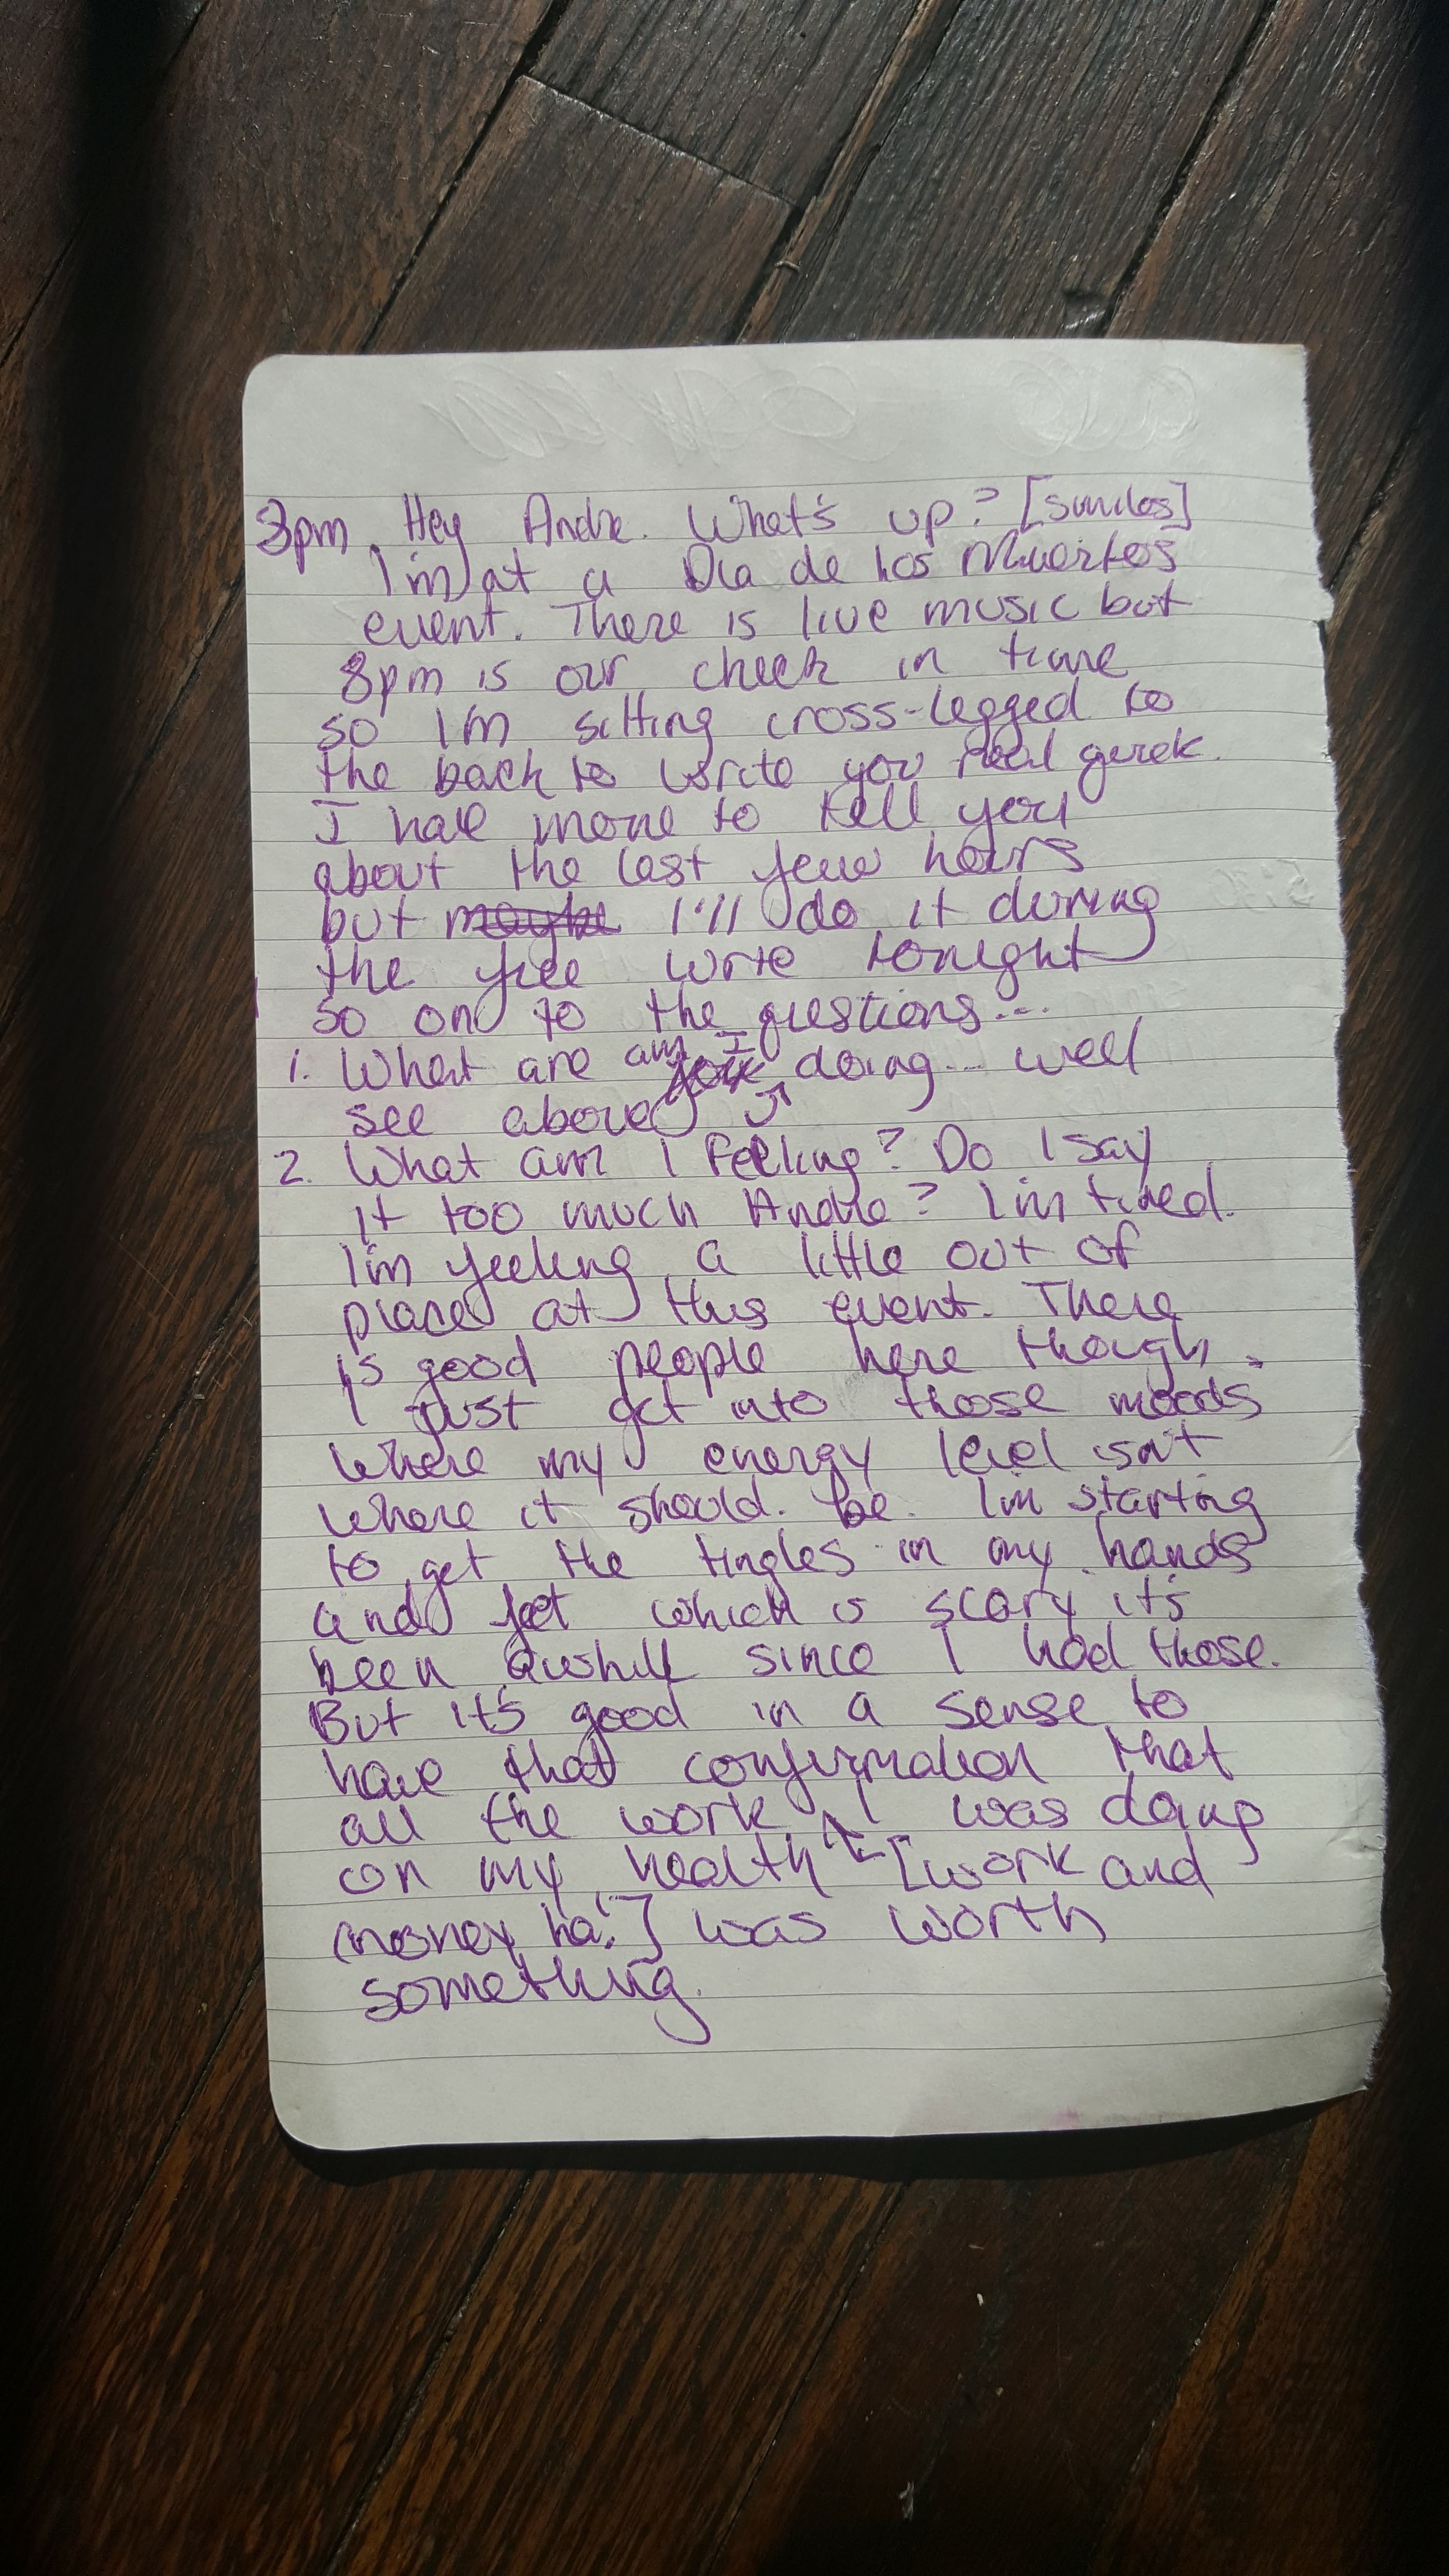 8pm Hey Andre. What's up? [smiles]
I'm at a Dia de los Muertos
event. There is live music but
8pm is our check in time
so I'm sitting cross-legged to
the back to write you real quick.
I have more to tell you
about the last few hours
but maybe I'll do it during
the free write tonight
so on to the questions...
1. What are am I doing... well
see above
2. What am I feeling? Do I say
it too much Andre? I'm tired.
I'm feeling a little out of
place at this event. There
is good people here though.
I just get into those moods
where my energy level isn't
where it should be. I'm starting
to get the tingles in my hands
and feet which is scary it's
been awhile since I had those.
But it's good in a sense to
have that confirmation that
all the work I was doing
on my health [work and
money ha!] was worth
something.